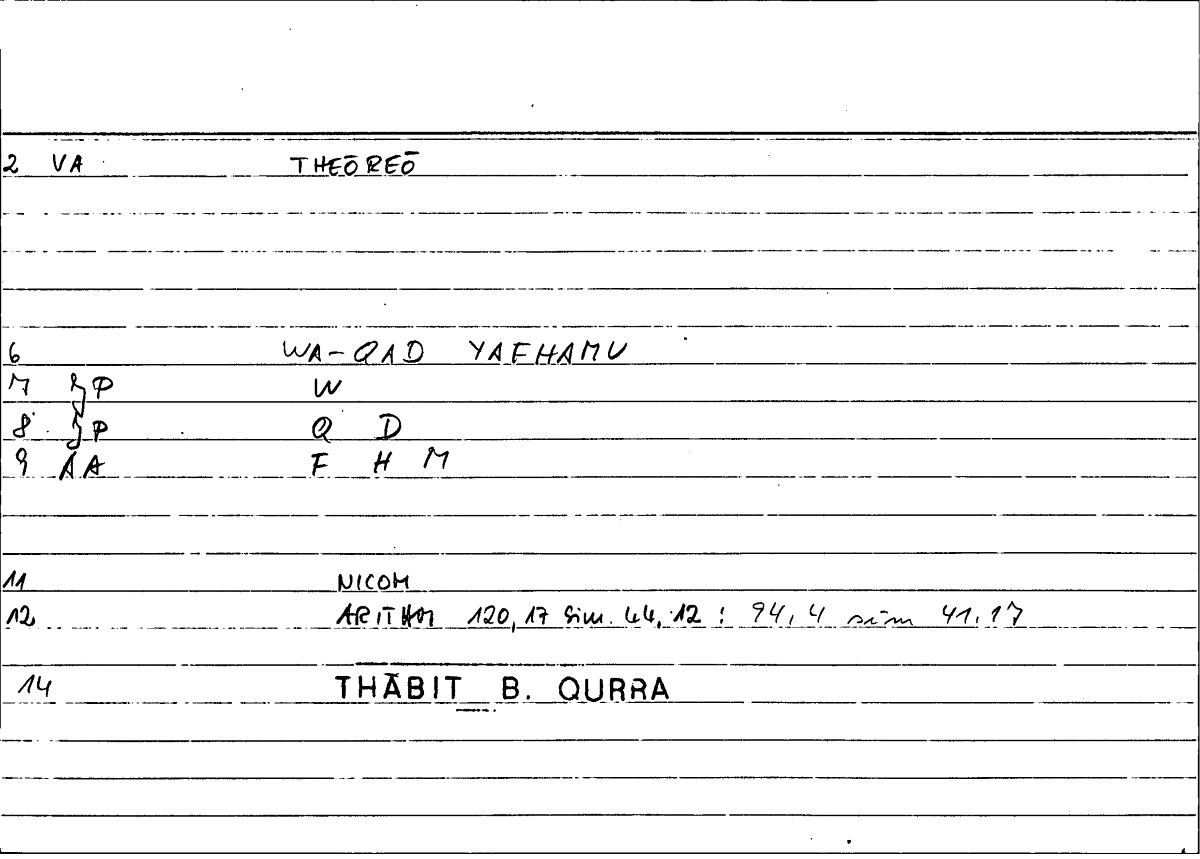 2 VA THEŌREŌ
6 WA-QAD YAFHAMU
7 P W
8 P Q D
9 AA F H M
11 NICOM
12 ARITHM 120,17 Sim. 44,12 : 94,4 sim 41.17
14 THĀBIT B. QURRA